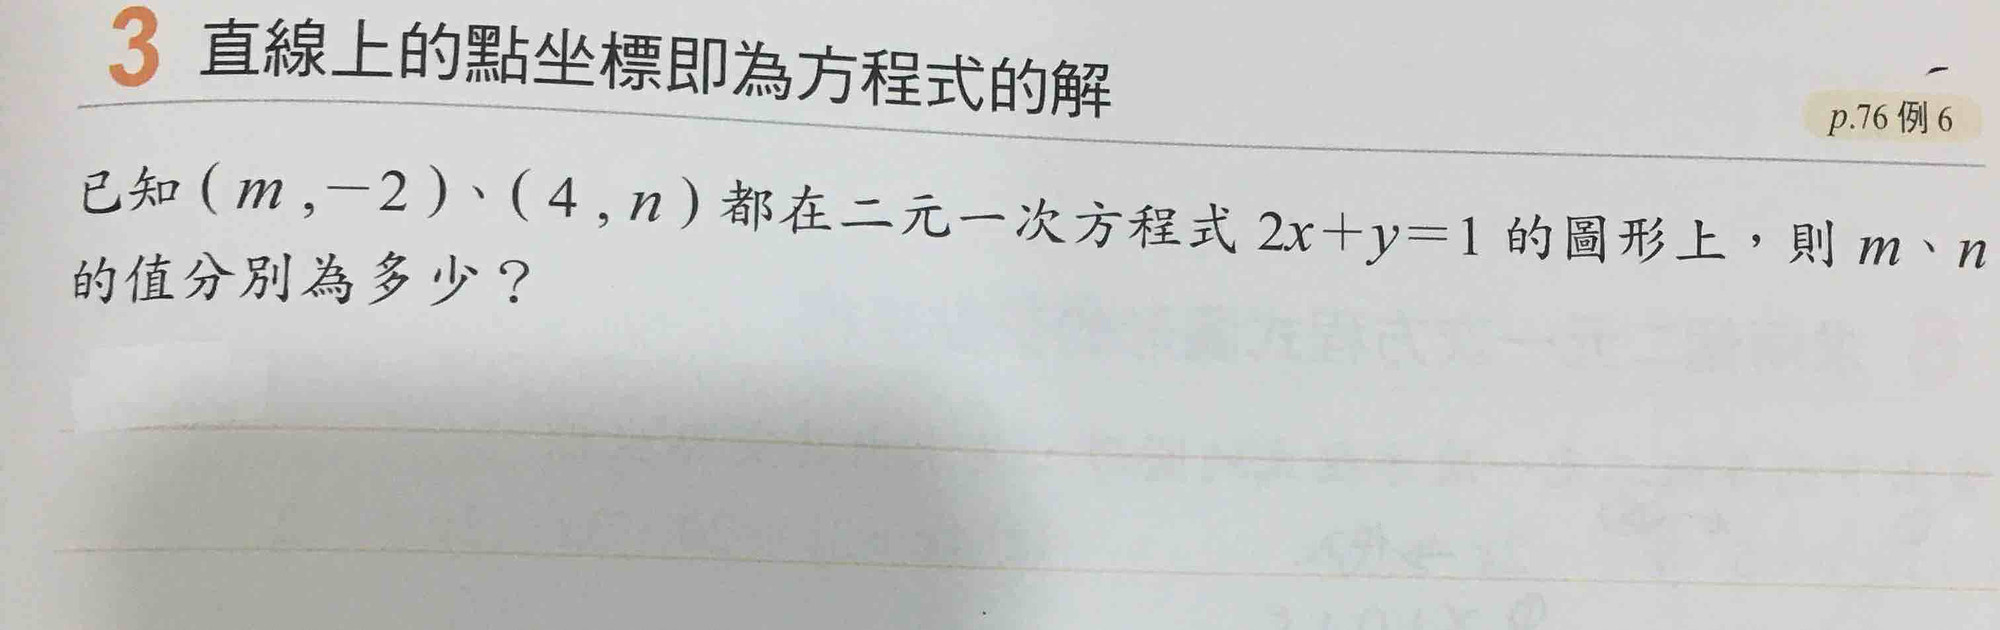 3 直線上的點坐標即為方程式的解
p.76 例 6
已知 ( m , －2 )、( 4 , n ) 都在二元一次方程式 2x＋y＝1 的圖形上，則 m、n
的值分別為多少？